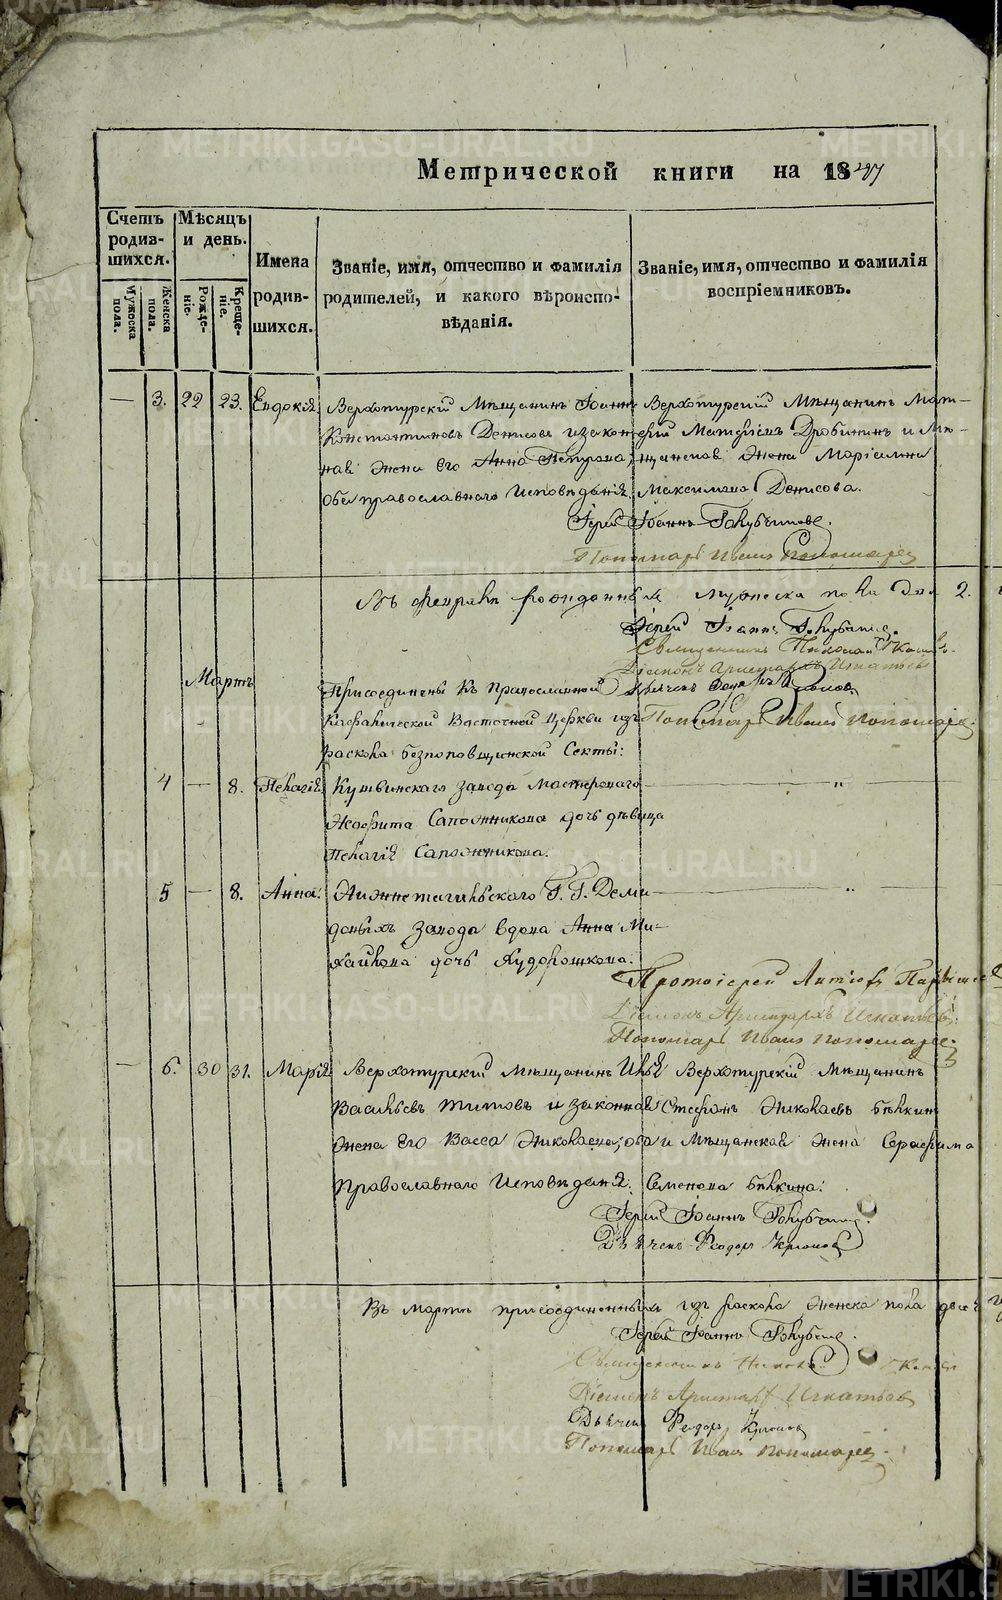 Метрической книги на 1847
Счетъ родившихся.
Мѣсяцъ и день.
Имена родившихся.
Званіе, имя, отчество и фамилія родителей, и какого вѣроисповѣданія.
Званіе, имя, отчество и фамилія воспріемниковъ.
Мужеска пола.
Женска пола.
Рожденіе.
Крещеніе.
— 3. 22 23. Евдокія
Верхотурскій Мѣщанинъ Іоаннъ
Константиновъ Денисовъ и закон-
ная жена его Анна Петрова,
оба православнаго исповѣданія.
Верхотурскій Мѣщанинъ Мат-
фей Матфіевъ Дробининъ и Мѣ-
щанская жена Маріамна
Максимова Денисова.
Іерей Іоаннъ
Пономарь Иванъ Пономарев
Въ Февралѣ рожденныхъ мужеска пола два 2.
Іерей Іоаннъ
Священникъ Николай
Діаконъ Аристархъ Игнатьев
Дьячек Федор
Пономарь Иванъ Пономарев
Мартъ
Присоединены къ Православной
Кафолической Восточной Церкви изъ
раскола безпоповщинской Секты:
4 — 8. Пелагія
Кушвинскаго завода мастероваго
Сапожникова дочь дѣвица
Пелагія Сапожникова.
5 — 8. Анна.
Нижнетагильскаго Г. Г. Деми-
довыхъ завода вдова Анна Ми-
хайлова дочь
Протоіерей
Діаконъ Аристархъ Игнатьев
Пономарь Иванъ Пономарев
— 6. 30 31. Марія
Верхотурскій Мѣщанинъ Илья
Васильевъ Титовъ и законная
жена его Васса Николаева, оба
Православнаго Исповѣданія.
Верхотурскій Мѣщанинъ
Стефанъ Николаевъ Бѣлкинъ
и Мѣщанская жена Серафима
Семенова Бѣлкина.
Іерей Іоаннъ
Дьячекъ Феодоръ
Въ Мартѣ присоединенныхъ изъ раскола женска пола двѣ
Іерей Іоаннъ
Священникъ
Діаконъ Аристархъ Игнатьев
Дьячек Федор
Пономарь Иванъ Пономарев
METRIKI.GASO-URAL.RU